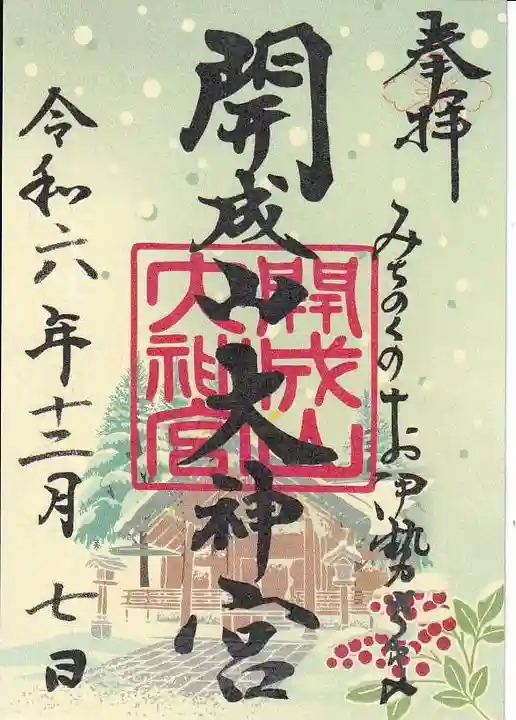 奉拝
みちのくのお伊勢さま
開成山大神宮
開成山
大神宮
令和六年十二月七日